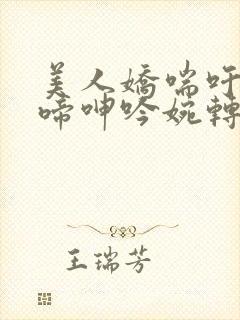 美人嬌喘吁
啼呻吟婉轉
王瑞芳